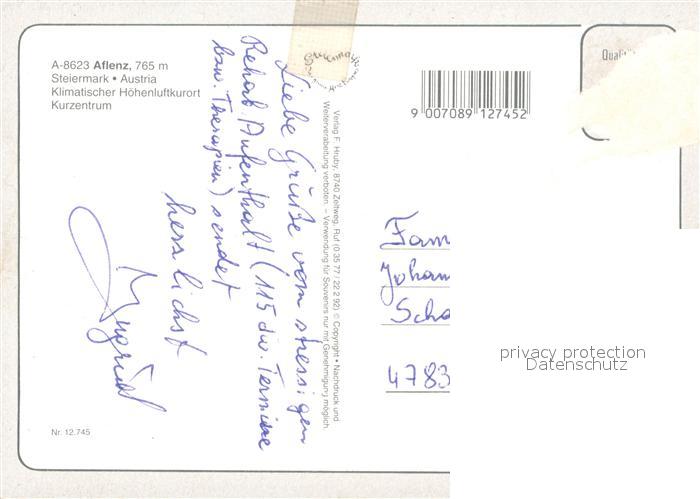 A-8623 Aflenz, 765 m
Steiermark • Austria
Klimatischer Höhenluftkurort
Kurzentrum
Liebe Grüße vom stressigen
Rehab. Aufenthalt (115 div. Termine
bzw. Therapien) sendet
herzlichst
Ingrid
Verlag F. Hruby, 8740 Zeltweg, Ruf (0 35 77 / 22 2 92) © Copyright • Nachdruck und
Weiterverarbeitung verboten. – Verwendung für Souvenirs nur mit Genehmigung möglich.
9 007089 127452
Fam
Johan
Scha
4783
privacy protection
Datenschutz
Nr. 12.745